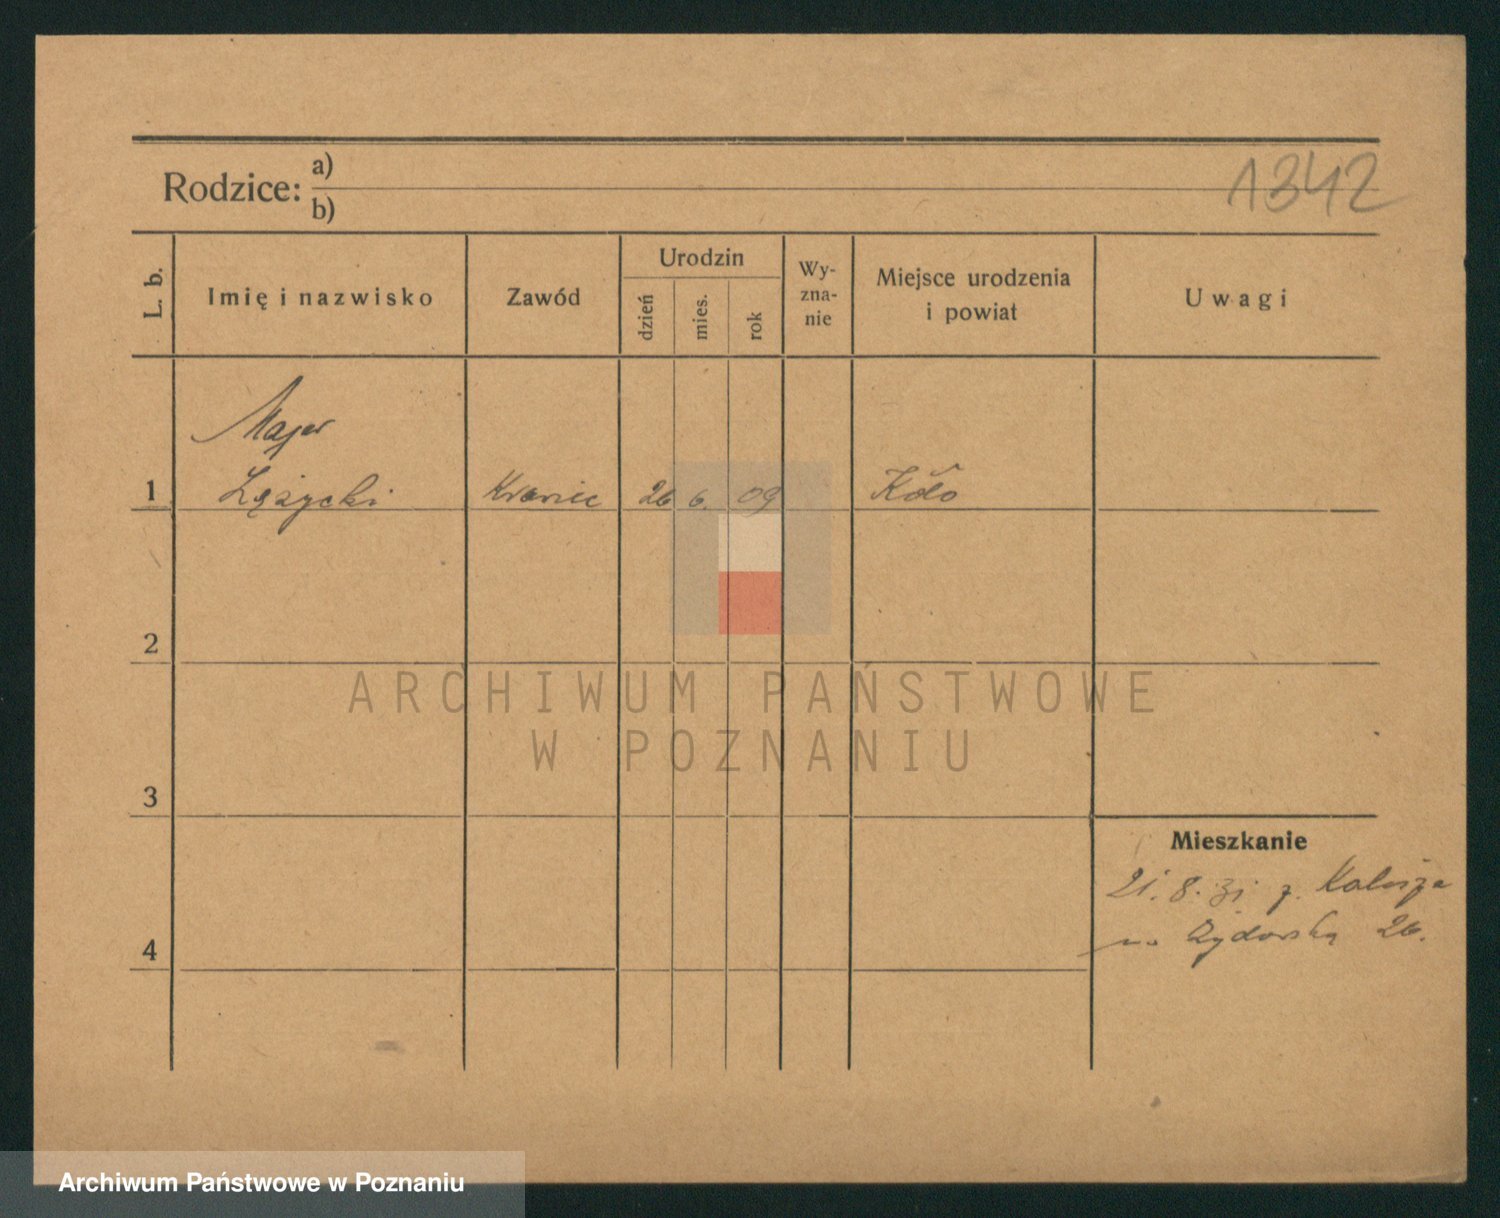 1342
Rodzice: a)
b)
L. b.
Imię i nazwisko
Zawód
Urodzin
dzień
mies.
rok
Wy-
zna-
nie
Miejsce urodzenia
i powiat
Uwagi
Majer
1 Łężycki Krawiec 26 6. 09 Koło
2
3
4
Mieszkanie
21. 8. 31 z Kalisza
na Żydowską 26.
ARCHIWUM PAŃSTWOWE
W POZNANIU
Archiwum Państwowe w Poznaniu